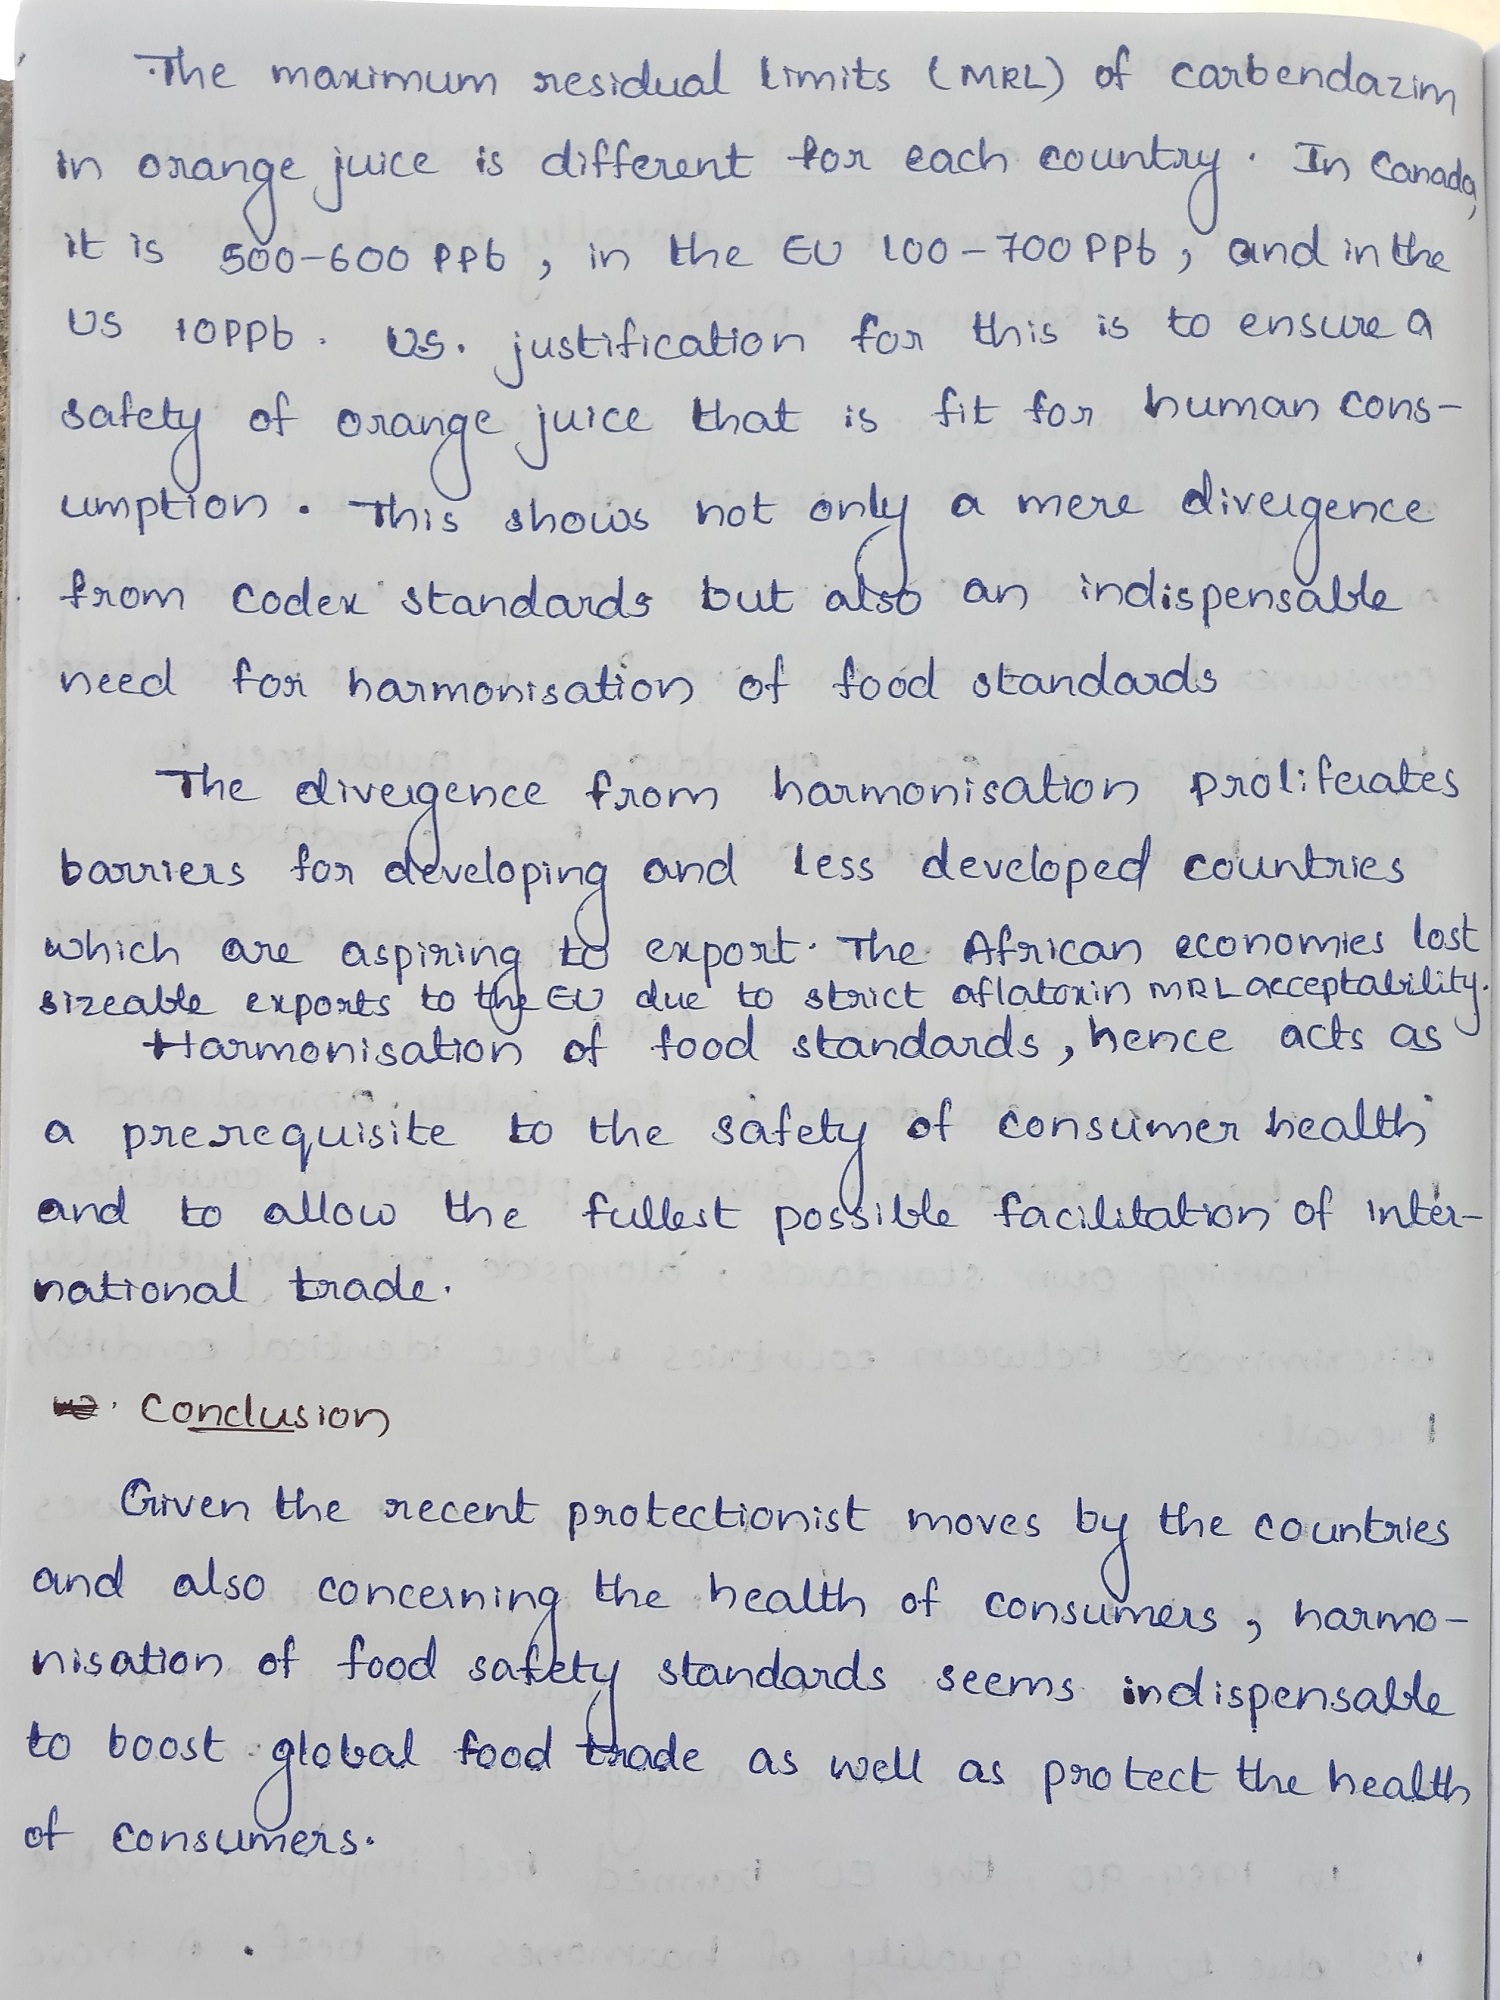 The maximum residual limits (MRL) of carbendazim
in orange juice is different for each country. In Canada,
it is 500-600 PPb, in the EU 100-700 PPb, and in the
US 10PPb. US. justification for this is to ensure a
safety of orange juice that is fit for human cons-
umption. This shows not only a mere divergence
from codex standards but also an indispensable
need for harmonisation of food standards
The divergence from harmonisation proliferates
barriers for developing and less developed countries
which are aspiring to export. The African economies lost
sizeable exports to the EU due to strict aflatoxin MRL acceptability.
Harmonisation of food standards, hence acts as
a prerequisite to the safety of consumer health
and to allow the fullest possible facilitation of inter-
national trade.
Conclusion
Given the recent protectionist moves by the countries
and also concerning the health of consumers, harmo-
nisation of food safety standards seems indispensable
to boost global food trade as well as protect the health
of consumers.